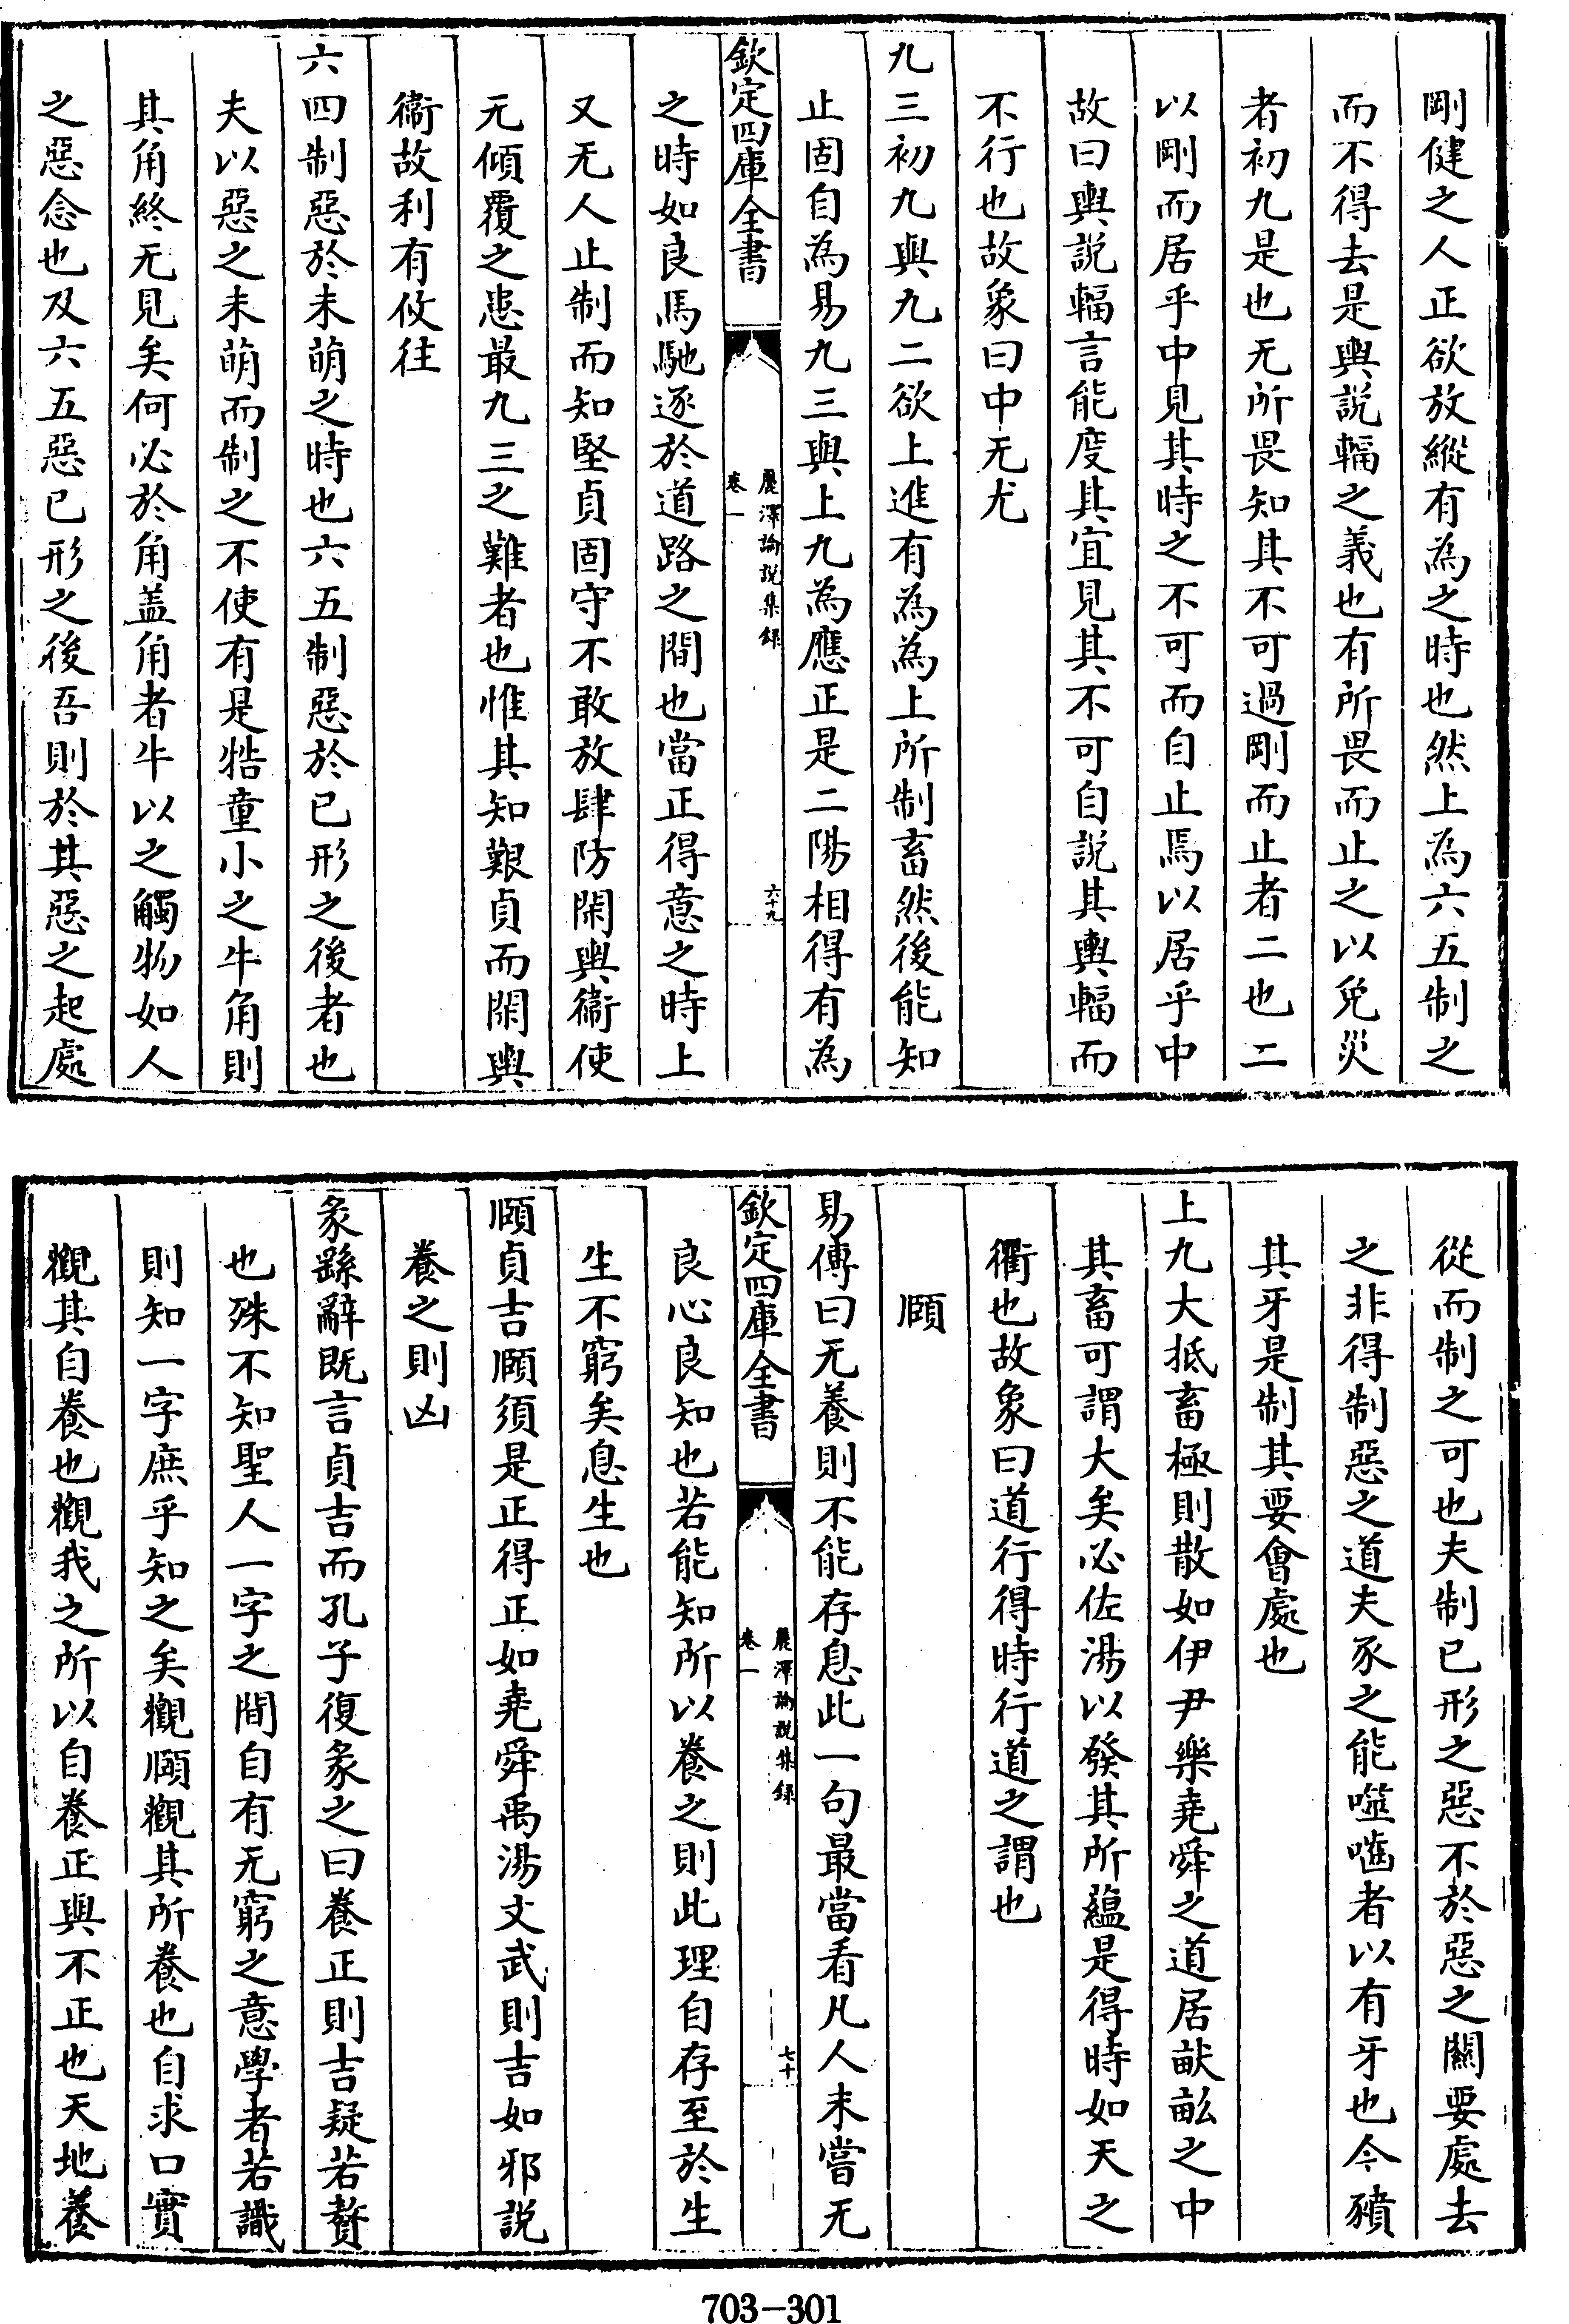 剛健之人正欲放縱有為之時也然上為六五制之
而不得去是輿説輻之義也有所畏而止之以免災
者初九是也无所畏知其不可過剛而止者二也二
以剛而居乎中見其時之不可而自止焉以居乎中
故曰輿説輻言能度其宜見其不可自説其輿輻而
不行也故象曰中无尤
九三初九與九二欲上進有為為上所制畜然後能知
止固自為易九三與上九為應正是二陽相得有為
欽定四庫全書
麗澤論説集録
卷一
六十九
之時如良馬馳逐於道路之間也當正得意之時上
又无人止制而知堅貞固守不敢放肆防閑輿衞使
无傾覆之患最九三之難者也惟其知艱貞而閑輿
衞故利有攸往
六四制惡於未萌之時也六五制惡於已形之後者也
夫以惡之未萌而制之不使有是牿童小之牛角則
其角終无見矣何必於角盖角者牛以之觸物如人
之惡念也及六五惡已形之後吾則於其惡之起處
從而制之可也夫制已形之惡不於惡之關要處去
之非得制惡之道夫豕之能噬嚙者以有牙也今豶
其牙是制其要會處也
上九大抵畜極則散如伊尹樂堯舜之道居畎畝之中
其畜可謂大矣必佐湯以發其所蘊是得時如天之
衢也故象曰道行得時行道之謂也
頤
易傳曰无養則不能存息此一句最當看凡人未嘗无
欽定四庫全書
麗澤論説集録
卷一
七十
良心良知也若能知所以養之則此理自存至於生
生不窮矣息生也
頤貞吉頤須是正得正如堯舜禹湯文武則吉如邪説
養之則凶
彖繇辭既言貞吉而孔子復彖之曰養正則吉疑若贅
也殊不知聖人一字之間自有无窮之意學者若識
則知一字庶乎知之矣觀頤觀其所養也自求口實
觀其自養也觀我之所以自養正與不正也天地養
703-301